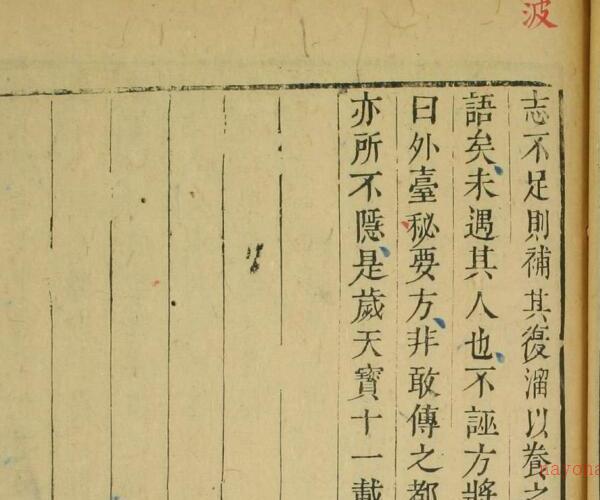 波
志不足則補其復溜以養之
語矣未遇其人也不誣方將
曰外臺秘要方非敢傳之都
亦所不隱是歲天寶十一載
nayona